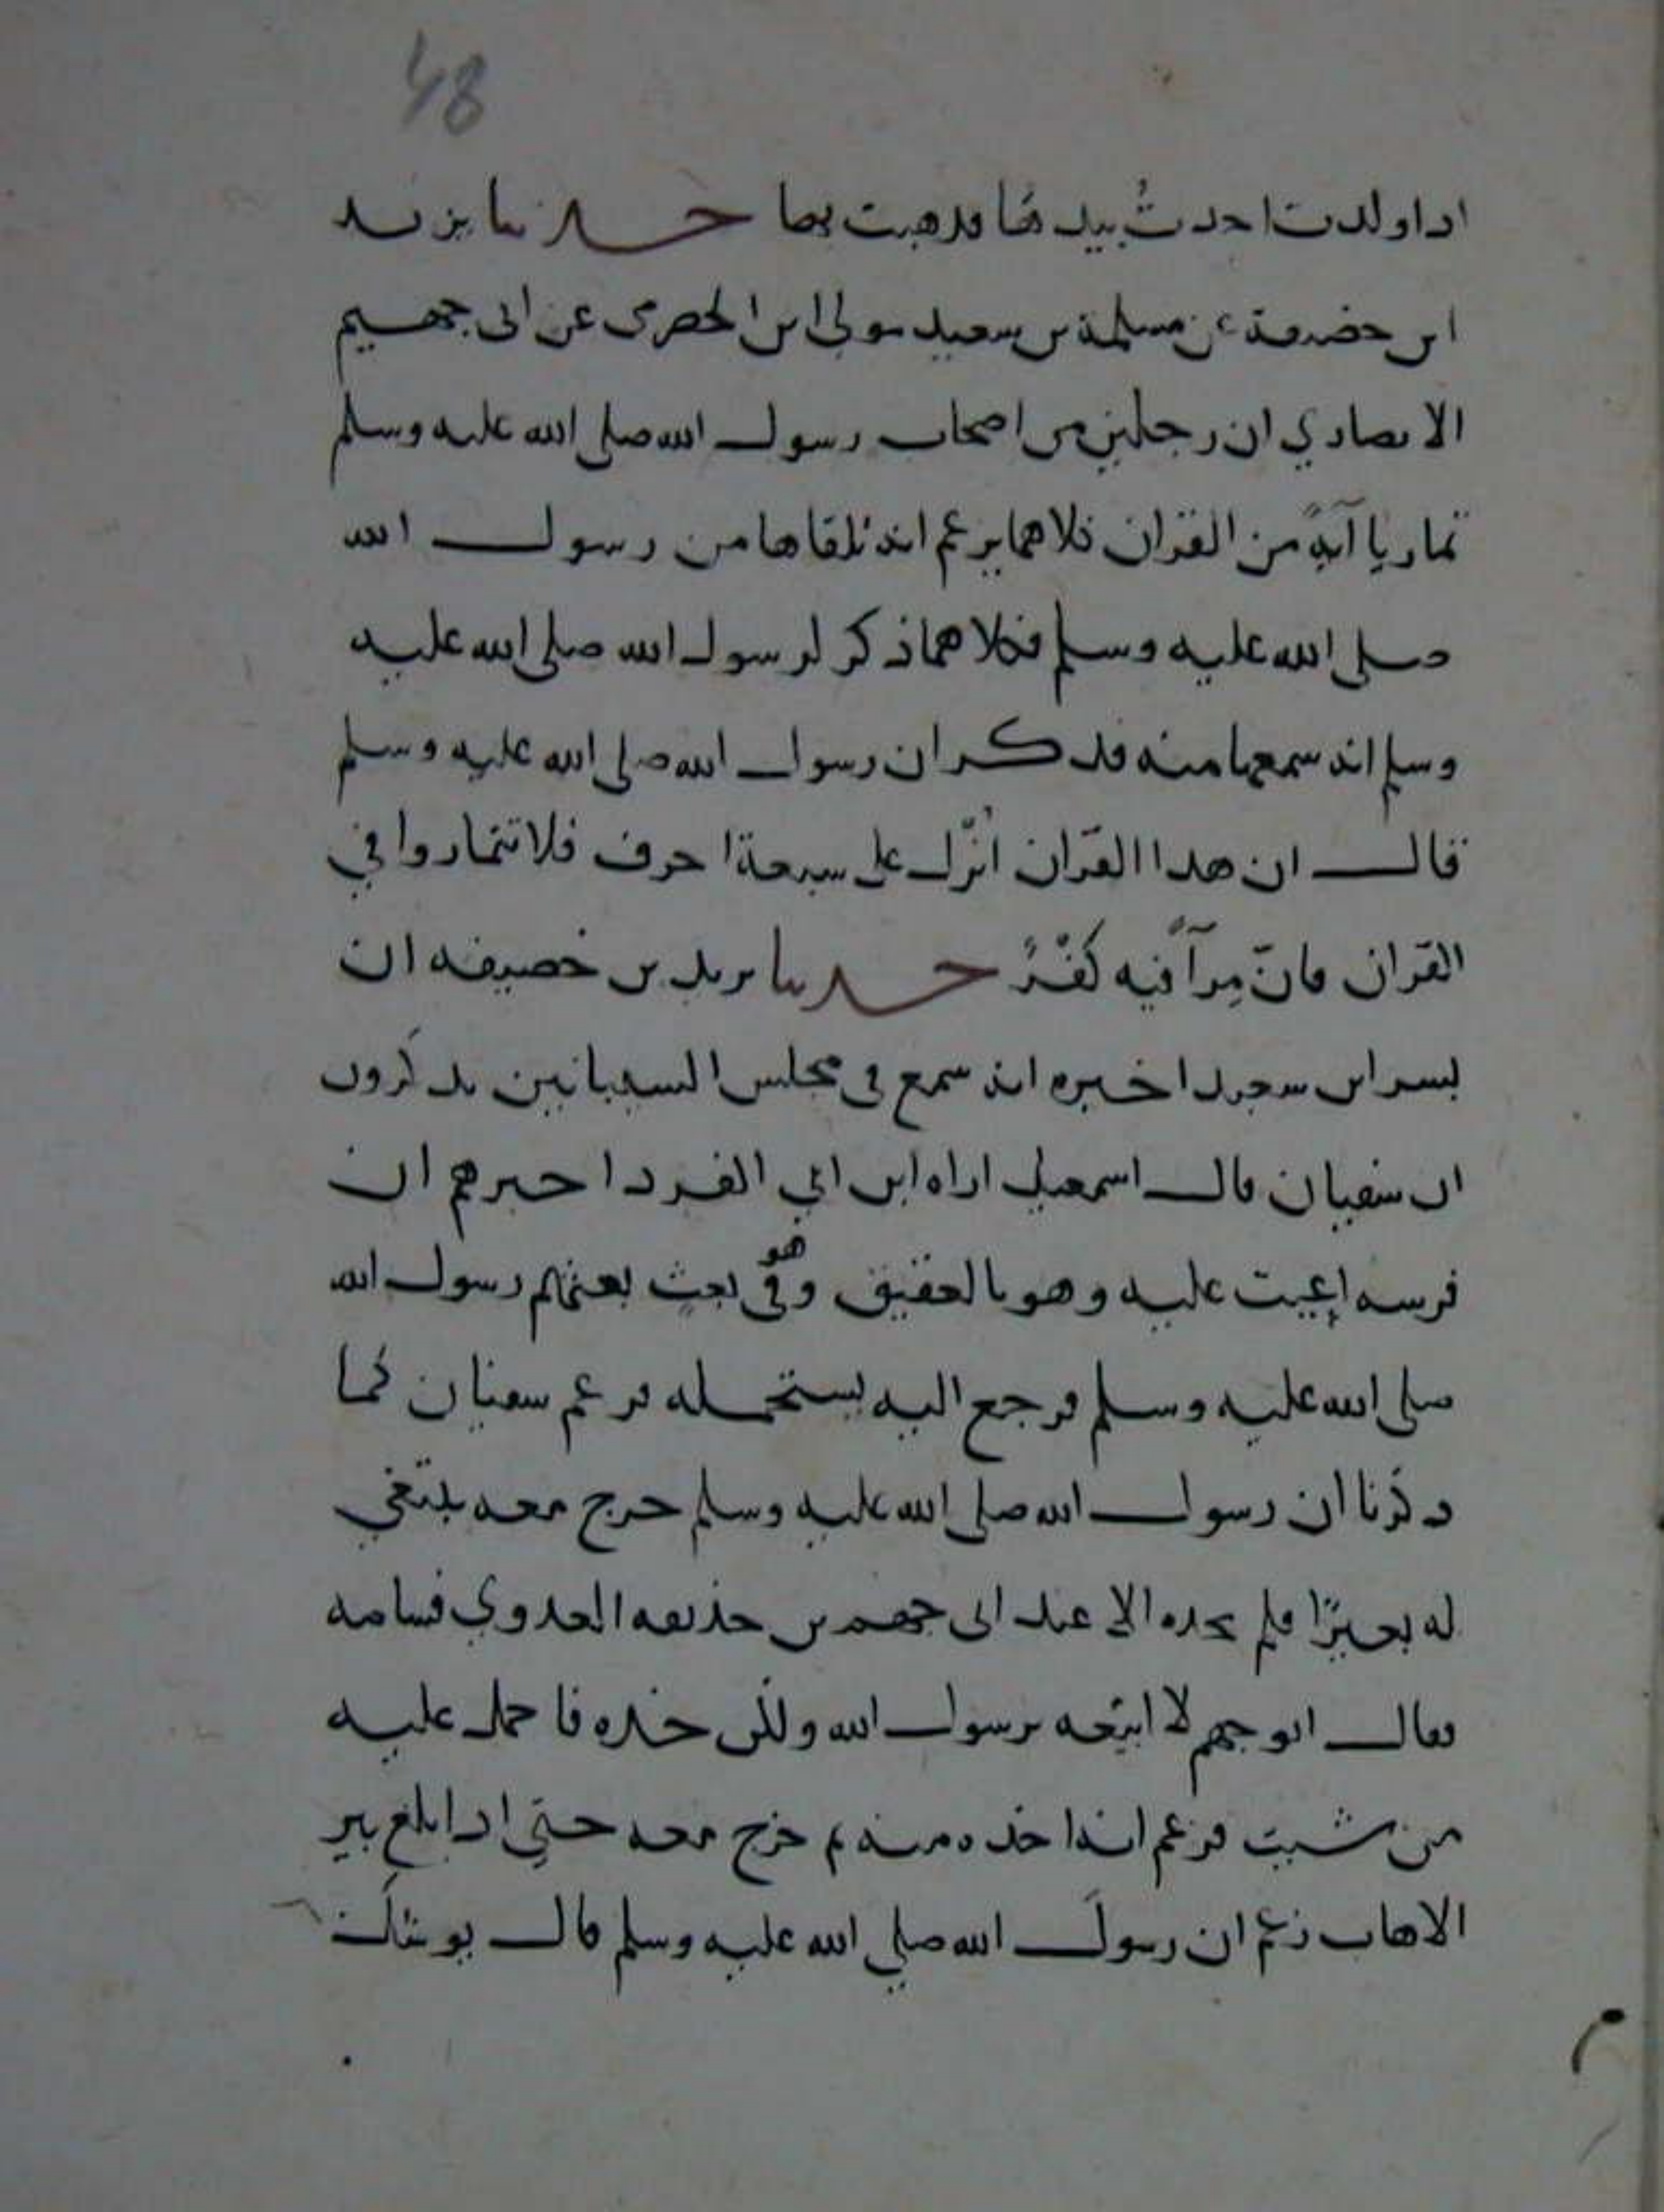 48
اداولدت احدث بيدها فدهبت بها حدثنا يزيد
ابن حضيفة عن مسلمة بن سعيد مولى ابن الحصرمى عن ابى جهيم
الانصاري ان رجلين من اصحاب رسول الله صلى الله عليه وسلم
تماريا آيةً من القران فلاهما يزعم انه تلقاها من رسول الله
صلى الله عليه وسلم فكلاهما ذكر لرسول الله صلى الله عليه
وسلم انه سمعها منه فدكر ان رسول الله صلى الله عليه وسلم
قال ان هدا القران انزل على سبعة احرف فلا تتماروا في
القران فانّ مِرآً فيه كُفْرٌ حدثنا يزيد بن خصيفه ان
بسر ابن سعيد اخبره انه سمع في مجلس يذكرون
ان سفيان قال اسمعيل اراه ابن ابي الفرد اخبرهم ان
فرسه اعيت عليه وهو بالعقيق وهو في بعثٍ بعثهم رسول الله
صلى الله عليه وسلم فرجع اليه يستحمله فزعم سفيان كما
دكرنا ان رسول الله صلى الله عليه وسلم خرج معه يبتغي
له بعيرًا فلم يجده الا عند ابى جهم بن حذيفه العدوي فسامه
فقال ابو جهم لا ابيعه يرسول الله ولكن خذه فاحمل عليه
من شيت فزعم انه اخذه منه ثم خرج معه حتي ادا بلغ بير
الاهاب زعم ان رسول الله صلي الله عليه وسلم قال يوشك